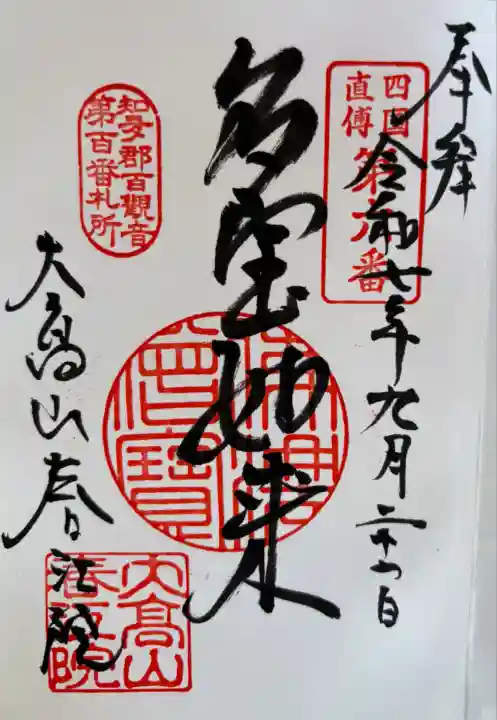 奉拝
四国
直傳
第 番
令和七年九月二十 日
多宝如来
佛法僧寳
知多郡百觀音
第百番札所
大高山春江院
大高山
春江院